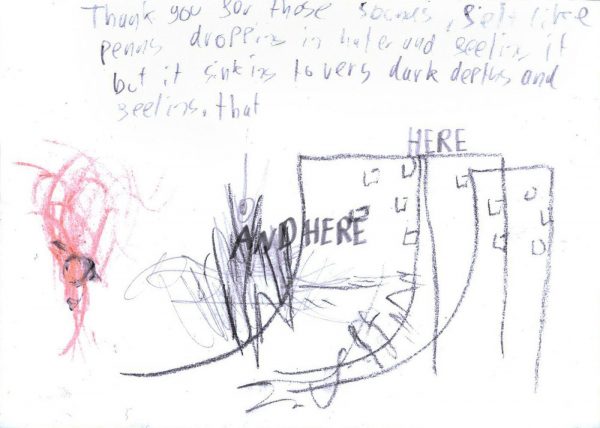 Thank you for those sounds, felt like
penny dropping in water and feeling it
but it sinking to very dark depths and
feeling, that
HERE
AND HERE